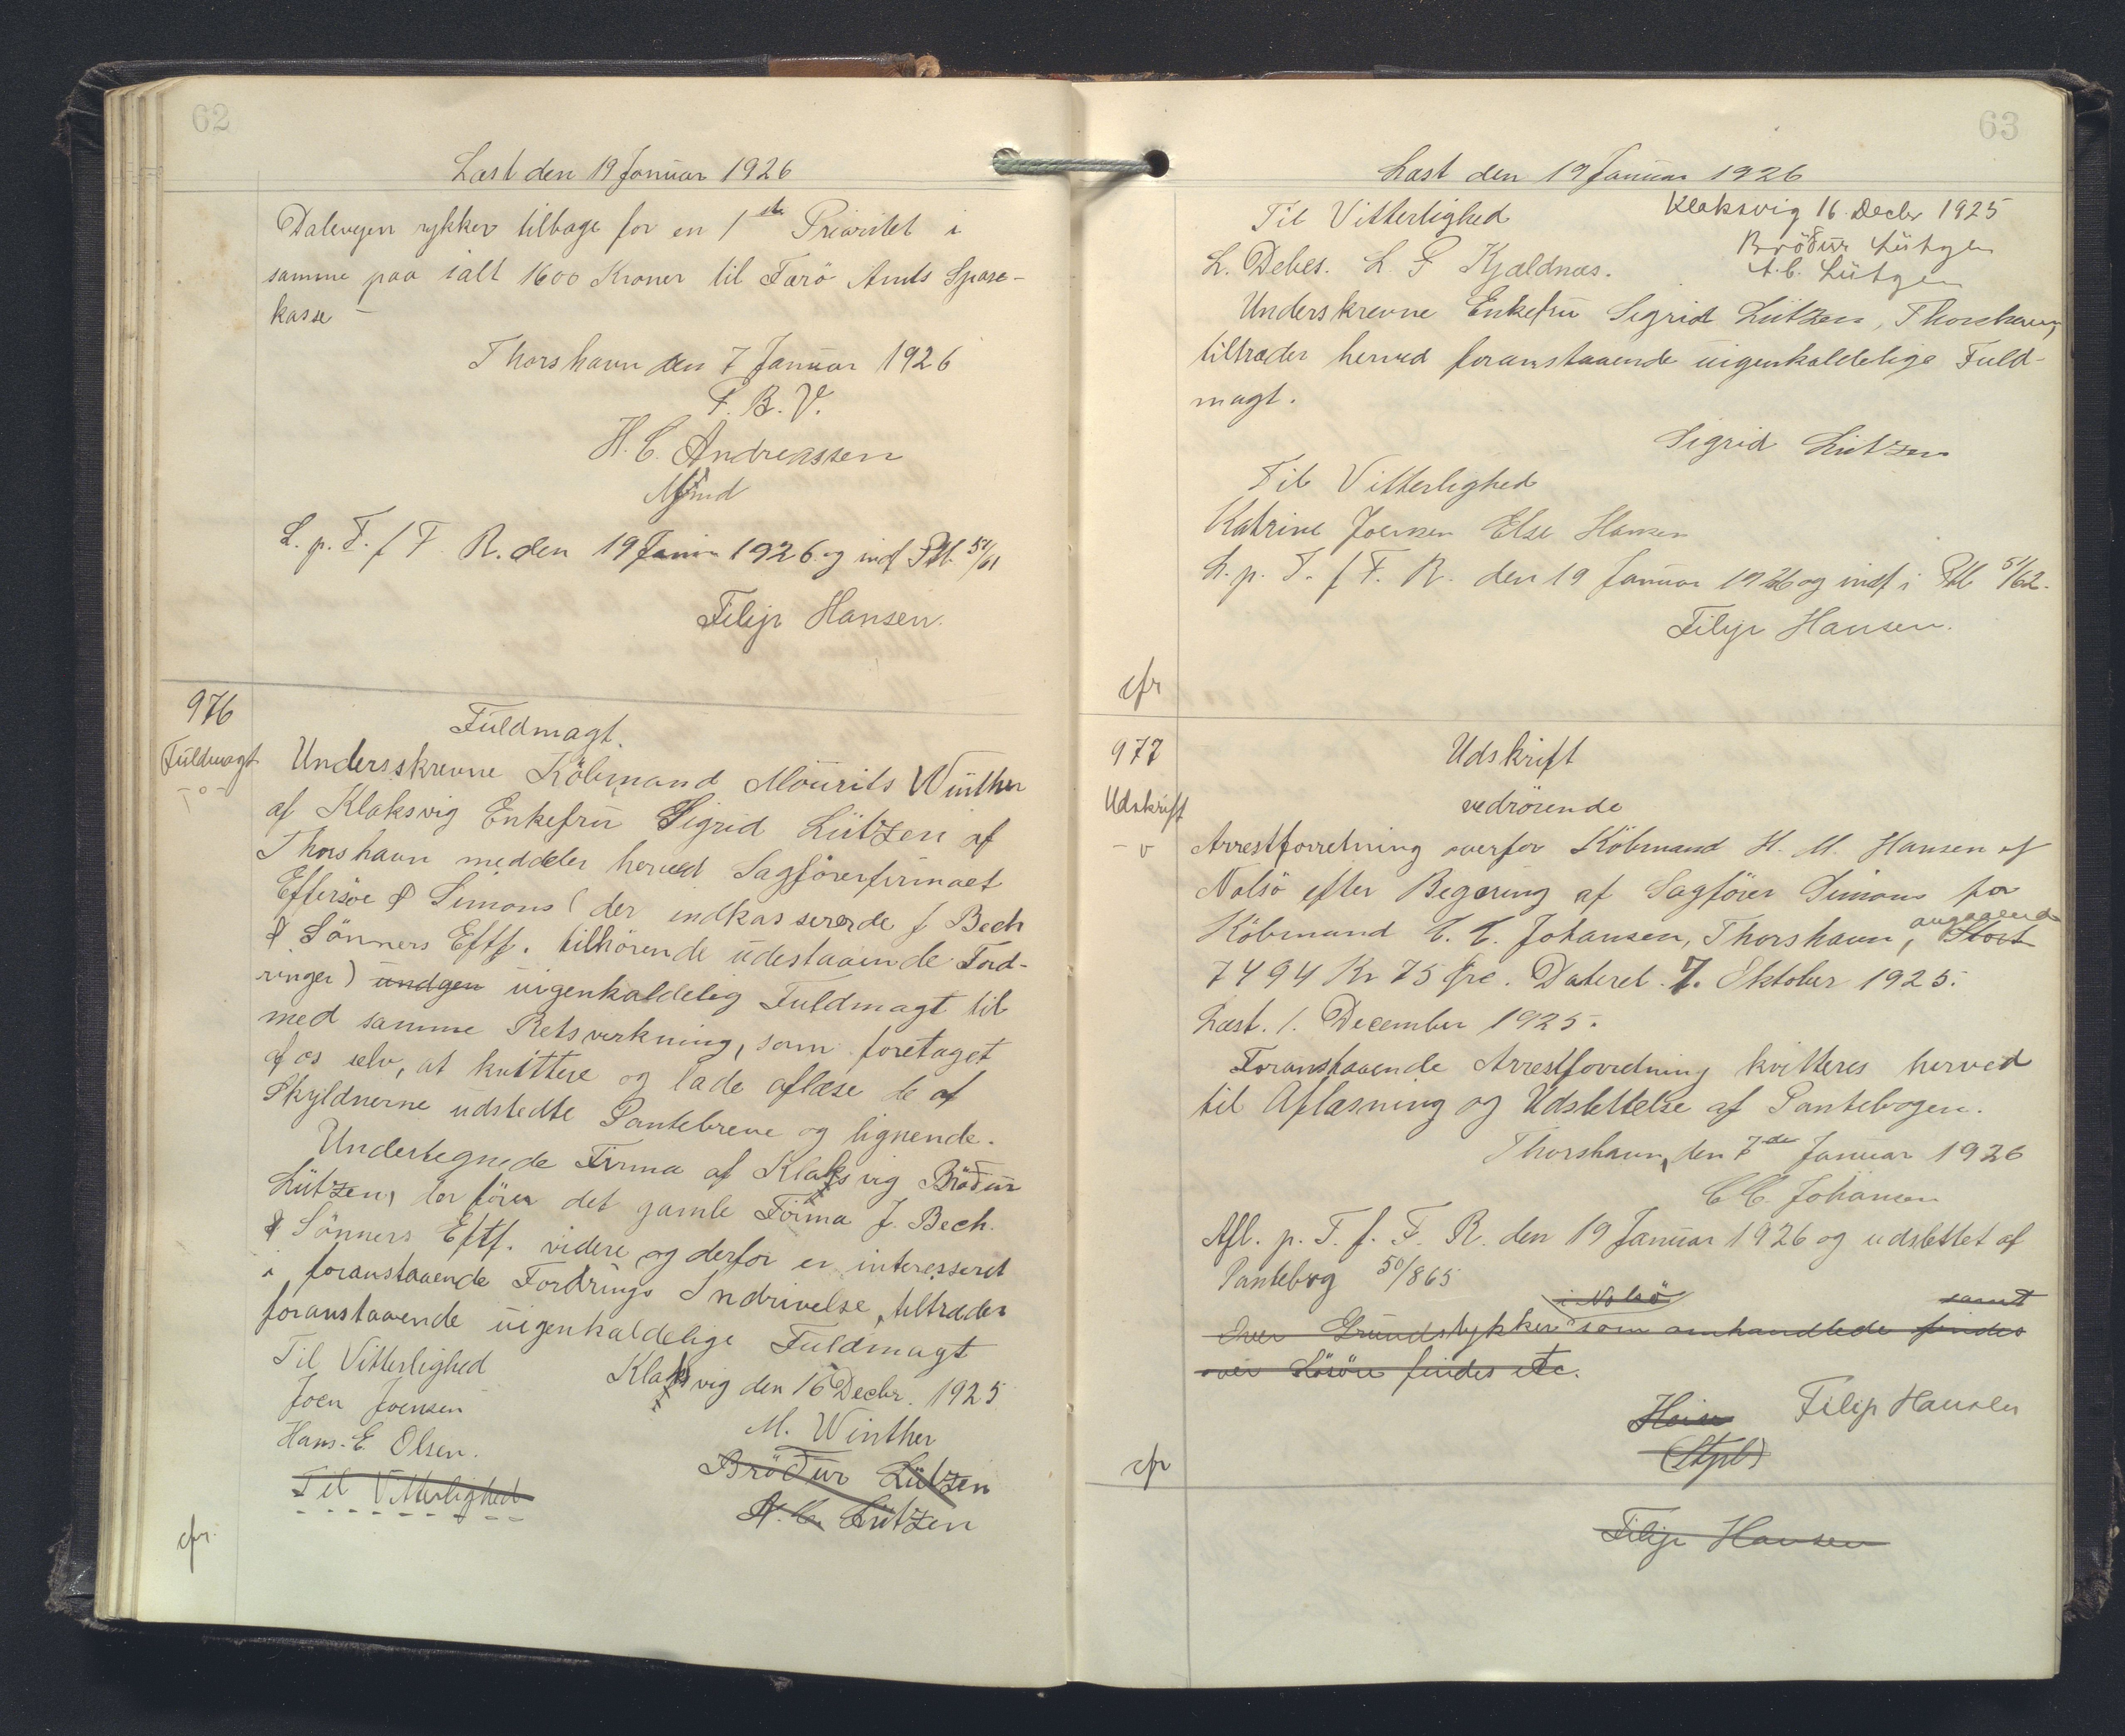 62
Læst den 19 Januar 1926
Dalevejen rykker tilbage for en 1ste Prioritet i
samme paa ialt 1600 Kroner til Færö Amts Spare-
kasse
Thorshavn den 7 Januar 1926
F. B. V.
H. C. Andreassen
Mfmd
L. p. T. f F. R. den 19 Januar 1926 og indf Ptb. 51/61
Filip Hansen.
976
Fuldmagt
Fuldmagt.
Undersskrevne Köbmand Mourits Winther
af Klaksvig Enkefru Sigrid Lützen af
Thorshavn meddeler herved Sagförerfirmaet
Effersöe & Simons (der indkasserede J Bech
& Sönners Eftf. tilhörende udestaaende Ford-
ringer) undgen uigenkaldelig Fuldmagt til
med samme Retsvirkning, som foretaget
af os selv, at kvittere og lade aflæse de af
Skyldnerne udstedte Pantebreve og lignende.
Undertegnede Firma af Klaksvig Bröður
Lützen, der förer det gamle Firma J. Bech.
& Sönners Eftf. videre og derfor er interesseret
i foranstaaende Fordrings Inddrivelse, tiltræder
foranstaaende uigenkaldelige Fuldmagt
Til Vitterlighed
Klaksvig den 16 Decbr. 1925
Joen Joensen
M. Winther
Hans. E. Olsen.
Bröður Lützen
Til Vitterlighed
A. C. Lützen
cfr.
63
Læst den 19 Januar 1926
Til Vitterlighed
Klaksvig 16. Decbr 1925
Bröður Lützen
L. Debes. L. P Kjældnæs.
A. C. Lützen
Underskrevne Enkefru Sigrid Lützen, Thorshavn,
tiltræder herved foranstaaende uigenkaldelige Fuld-
magt.
Sigrid Lützen
Til Vitterlighed
Katrine Joensen Else Hansen
L. p. T. f F. R. den 19 Januar 1926 og indf i Ptb 51/62.
Filip Hansen.
cfr
977
Udskrift
Udskrift
vedrörende
Arrestforretning overfor Köbmand H. M. Hansen af
Nolsö efter Begæring af Sagförer Simons for
Köbmand C. C. Johansen, Thorshavn, Stort angaaende
7494 Kr 75 Øre. Dateret 7. Oktober 1925.
Læst. 1. December 1925.
Foranstaaende Arrestforretning kvitteres herved
til Aflæsning og Udslettelse af Pantebogen.
Thorshavn, den 7de Januar 1926
C C. Johansen
Afl. p. T. f. F. R. den 19 Januar 1926 og udslettet af
Pantebog 50/865
i Nolsö samt
Over Grundstykker som omhandlede findes
over Lösöre findes etc.
Filip Hansen
(Stpl)
cfr
Filip Hansen